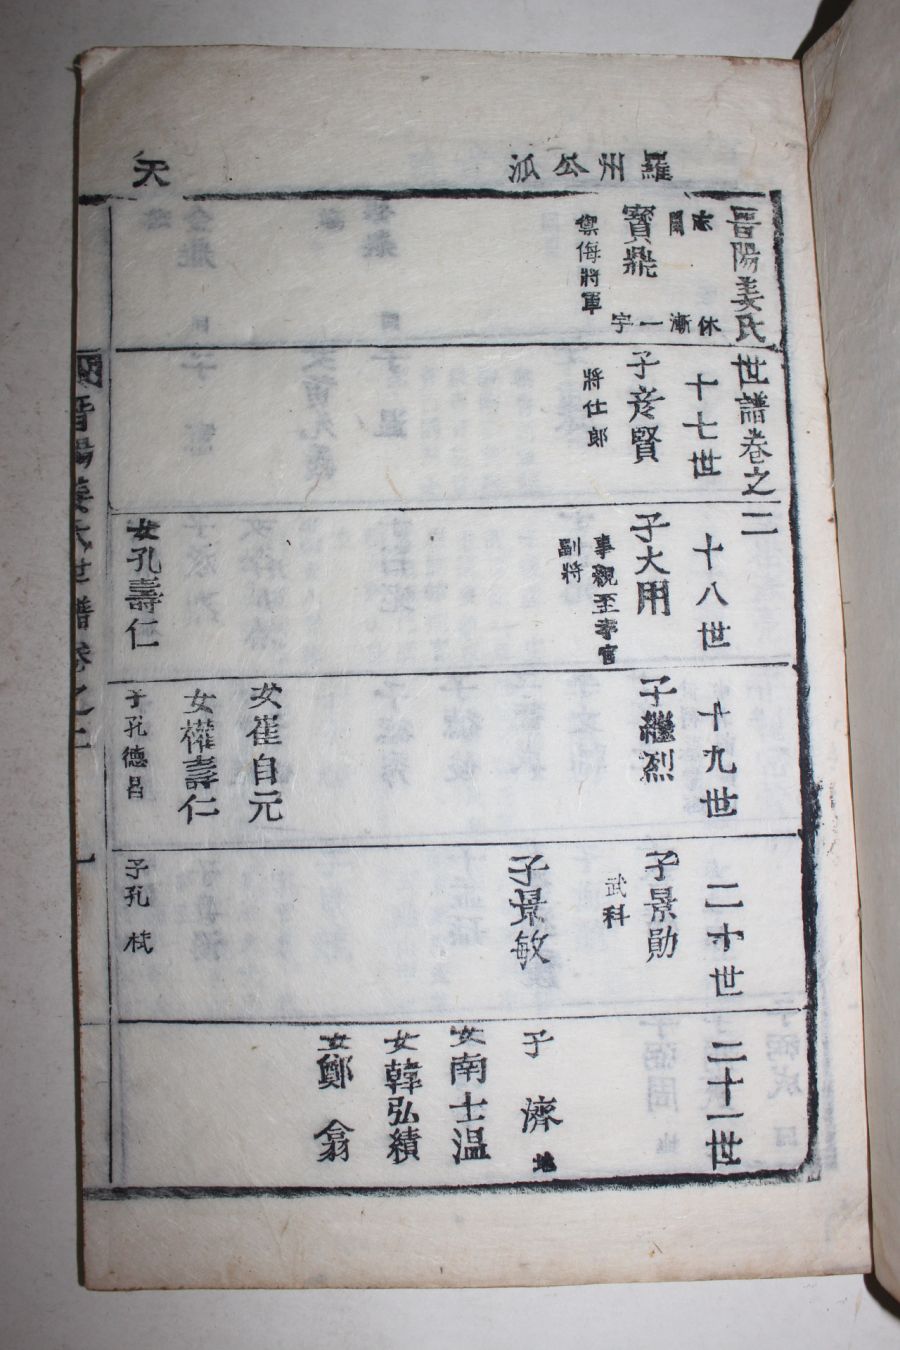 羅州公派
天
晋陽姜氏世譜卷之二
寶鼎
禦侮將軍
十七世
子彦賢
將仕郎
十八世
子大用
事親至孝官
副將
女孔壽仁
十九世
子繼烈
女崔自元
女權壽仁
子孔德昌
二十世
子景勛
武科
子景敏
子孔
二十一世
子濟
女南士温
女韓弘績
女鄭翕
晋陽姜氏世譜卷之二
一